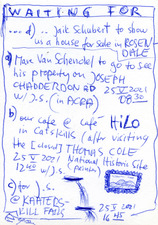 WAITING FOR
... d) .. Jaik Schubert to show
us a house for sale in ROSEN-
DALE
a) Marc Van Schenckel to go to see
his property on JOSEPH
CHADDERDON RD 25 V 2021
w/ J.S. (in ACRA) 08 30
b) our cafe @ café HiLO
in Catskills (after visiting
the [closed] THOMAS COLE
25 V 2021 National Historic Site
12 40 w/J.S.
c) for J.S.
@ KAATERS-
KILL FALLS
25 V 2021
16 45